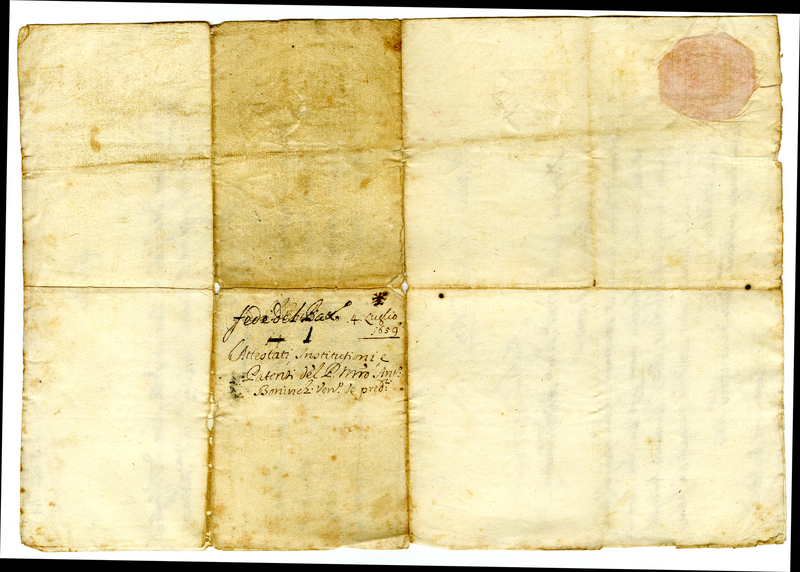 Fede Del Bat.
4 Luglio
1659
1
Attestati Institutioni e
Patenti del P. Mro Ant.
Ven. de pred.